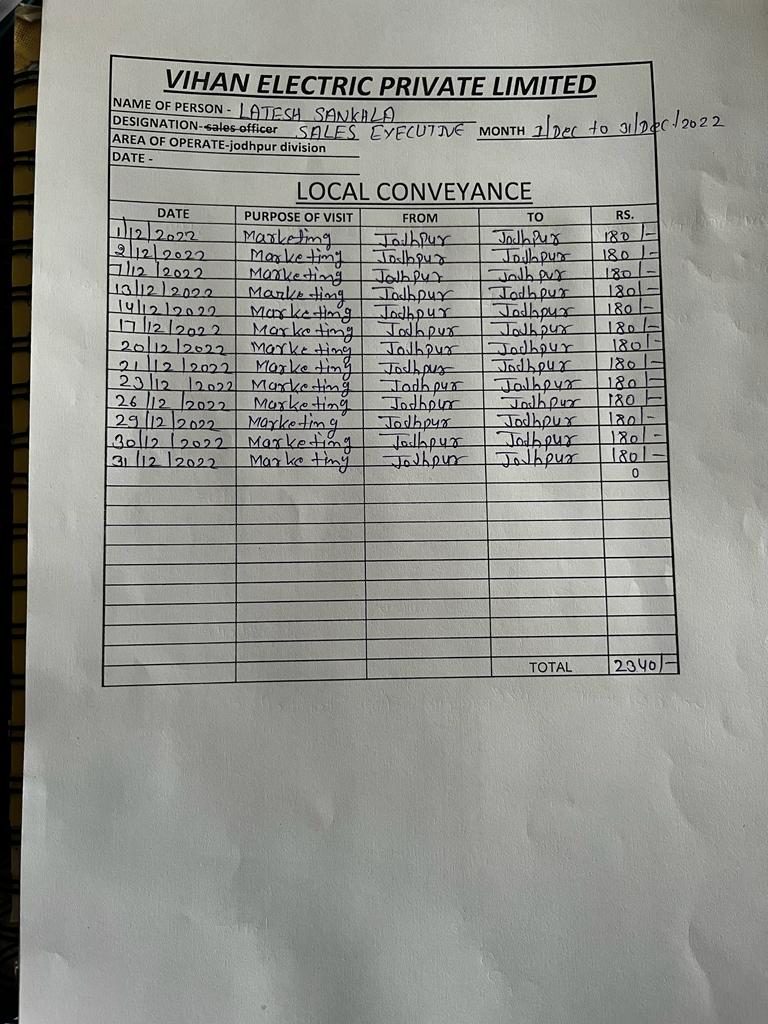 VIHAN ELECTRIC PRIVATE LIMITED
NAME OF PERSON - LATESH SANKHLA
DESIGNATION-sales officer SALES EXECUTIVE MONTH 1/Dec to 31/Dec/2022
AREA OF OPERATE-jodhpur division
DATE -
LOCAL CONVEYANCE
DATE PURPOSE OF VISIT FROM TO RS.
1/12/2022 Marketing Jodhpur Jodhpur 180/-
2/12/2022 Marketing Jodhpur Jodhpur 180/-
7/12/2022 Marketing Jodhpur Jodhpur 180/-
13/12/2022 Marketing Jodhpur Jodhpur 180/-
14/12/2022 Marketing Jodhpur Jodhpur 180/-
17/12/2022 Marketing Jodhpur Jodhpur 180/-
20/12/2022 Marketing Jodhpur Jodhpur 180/-
21/12/2022 Marketing Jodhpur Jodhpur 180/-
23/12/2022 Marketing Jodhpur Jodhpur 180/-
26/12/2022 Marketing Jodhpur Jodhpur 180/-
29/12/2022 Marketing Jodhpur Jodhpur 180/-
30/12/2022 Marketing Jodhpur Jodhpur 180/-
31/12/2022 Marketing Jodhpur Jodhpur 180/-
0
TOTAL 2340/-